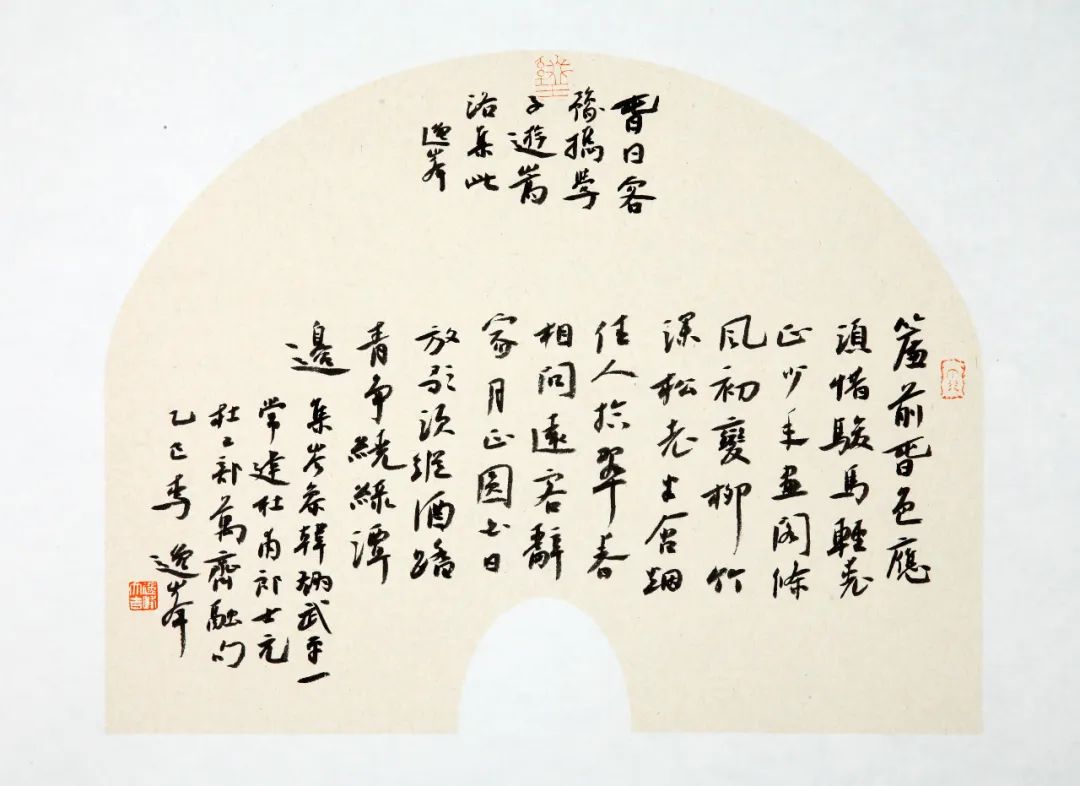 昔日客
豫携學
子遊嵩
洛集此
逸峯
簾前春色應
須惜駿馬輕裘
正少年畫閣條
風初變柳竹
深松老半含烟
佳人拾翠春
相問遠客辭
家月正圓白日
放歌須縱酒踏
青爭繞綠潭
邊 集岑參韓翃武平一
常建杜甫郎士元
杜工部萬齊融句
乙巳春 逸峯